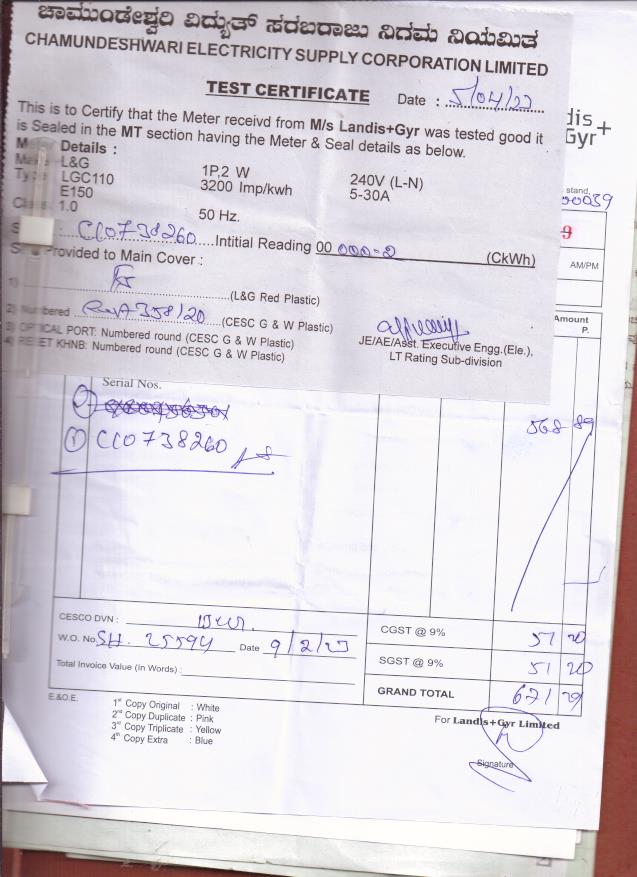 ಚಾಮುಂಡೇಶ್ವರಿ ವಿದ್ಯುತ್ ಸರಬರಾಜು ನಿಗಮ ನಿಯಮಿತ
CHAMUNDESHWARI ELECTRICITY SUPPLY CORPORATION LIMITED
TEST CERTIFICATE
Date : 5/04/23
This is to Certify that the Meter receivd from M/s Landis+Gyr was tested good it
is Sealed in the MT section having the Meter & Seal details as below.
Details :
L&G 1P,2 W 240V (L-N)
LGC110 3200 Imp/kwh 5-30A
E150
1.0 50 Hz.
C10738260 Intitial Reading 00 000-2 (CkWh)
Provided to Main Cover :
1) (L&G Red Plastic)
2) Numbered 358/20 (CESC G & W Plastic)
3) OPTICAL PORT: Numbered round (CESC G & W Plastic)
4) RESET KHNB: Numbered round (CESC G & W Plastic)
JE/AE/Asst. Executive Engg.(Ele.),
LT Rating Sub-division
stand,
AM/PM
Amount
P.
Serial Nos.
568 89
① C10738260
CESCO DVN :
W.O. No. SH. 25594 Date 9/2/23
Total Invoice Value (In Words) :
CGST @ 9% 51 20
SGST @ 9% 51 20
GRAND TOTAL 671 29
E.&O.E.
1st Copy Original : White
2nd Copy Duplicate : Pink
3rd Copy Triplicate : Yellow
4th Copy Extra : Blue
For Landis+Gyr Limited
Signature